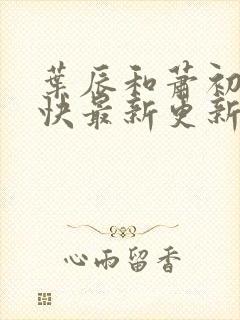 葉辰和蕭初
快最新更新
心雨留香